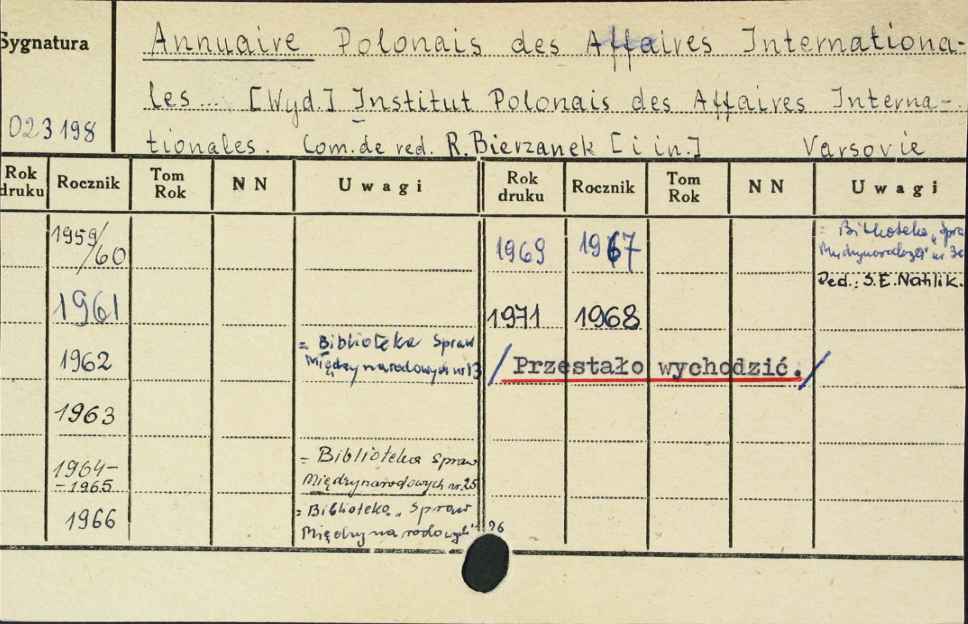 Sygnatura
023198
Annuaire Polonais des Affaires Internationa-
les... [Wyd.] Institut Polonais des Affaires Interna-
tionales. Com. de red. R. Bierzanek [i in.] Varsovie
Rok druku Rocznik Tom Rok NN Uwagi Rok druku Rocznik Tom Rok NN Uwagi
1959/60
1961
1962 = Biblioteka Spraw
Międzynarodowych nr 13
1963
1964-
-1965 = Biblioteka Spraw
Międzynarodowych nr. 25
1966 = Biblioteka „Spraw
Międzynarodowych" 26
1969 1967 = Biblioteka „Spra
Międzynarodowych" nr 30
Red.: S.E. Nahlik.
1971 1968
/Przestało wychodzić./